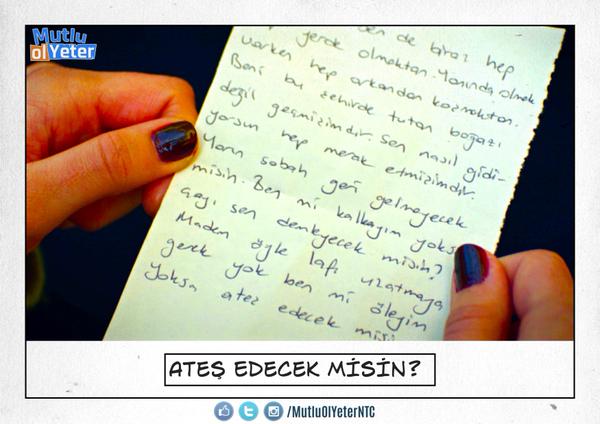 Mutlu
ol Yeter
sen de biraz hep
gerek olmaktan. Yanında olmak
varken hep arkandan koşmaktan.
Beni bu şehirde tutan boğazı
değil geçmişimdir. Sen nasıl gidi-
yorsun hep merak etmişimdir.
Yarın sabah geri gelmeyecek
misin. Ben mi kalkayım yoksa
çayı sen demleyecek misin?
Madem öyle lafı uzatmaya
gerek yok ben mi öleyim
Yoksa ateş edecek misi
ATEŞ EDECEK MİSİN?
/MutluOlYeterNTC